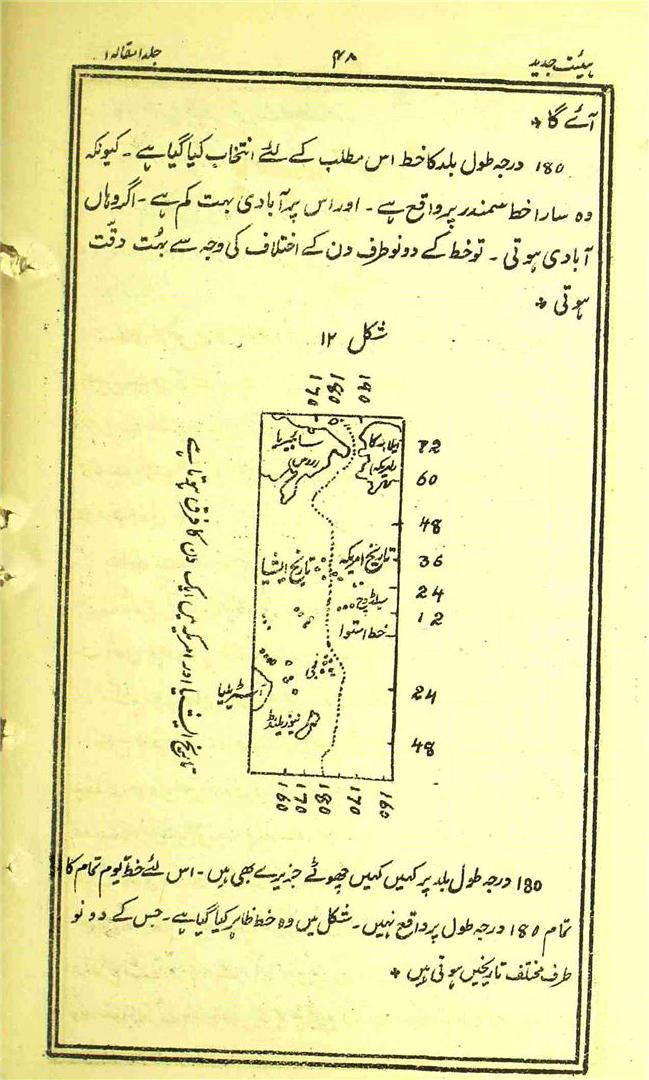 ہیئت جدید
۴۸
جلد ۱ مقالہ ۱
آئے گا *
180 درجہ طول بلد کا خط اس مطلب کے لئے انتخاب کیا گیا ہے ۔ کیونکہ
وہ سارا خط سمندر پر واقع ہے ۔ اور اس پر آبادی بہت کم ہے ۔ اگر وہاں
آبادی ہوتی ۔ تو خط کے دونو طرف دن کے اختلاف کی وجہ سے بہُت دقّت
ہوتی *
شکل ۱۲
170 180 190
سائبیریا
روس
ایلاسکا
امریکہ
72
60
48
36
24
12
24
48
تاریخ امریکہ
تاریخ ایشیا
سینڈوچ
خط استوا
فجی
آسٹریلیا
نیوزیلنڈ
160 170 180 170 160
تاریخ ایشیا اور امریکہ میں ایک دن کا فرق ہوتا ہے
180 درجہ طول بلد پر کہیں کہیں چھوٹے جزیرے بھی ہیں ۔ اس لئے خط یوم تمام کا
تمام 180 درجہ طول پر واقع نہیں ۔ شکل میں وہ خط ظاہر کیا گیا ہے ۔ جس کے دونو
طرف مختلف تاریخیں ہوتی ہیں *